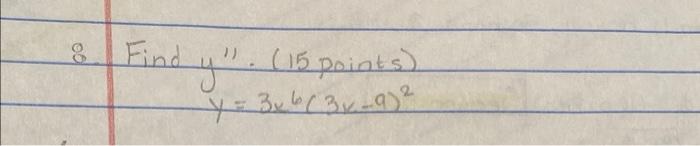 8. Find y". (15 points)
y = 3x⁶(3x-9)²